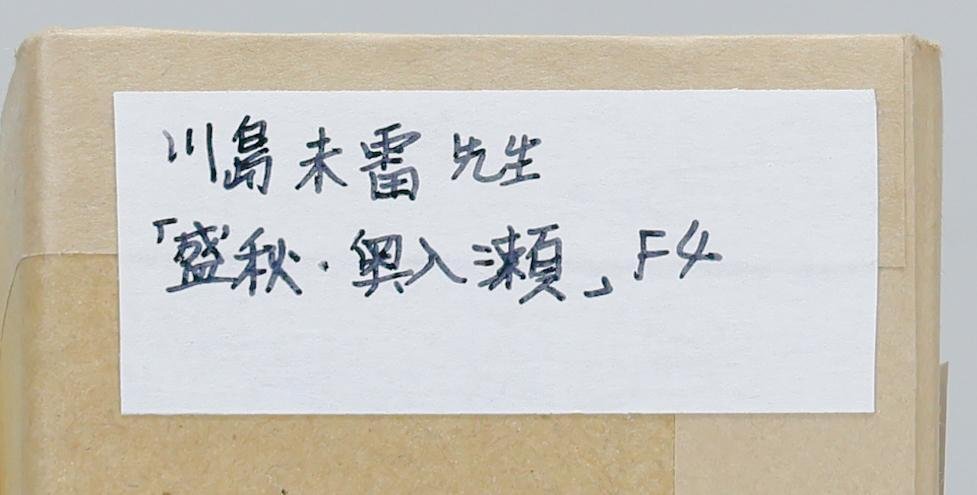 川島未雷先生
「盛秋・奥入瀬」F4